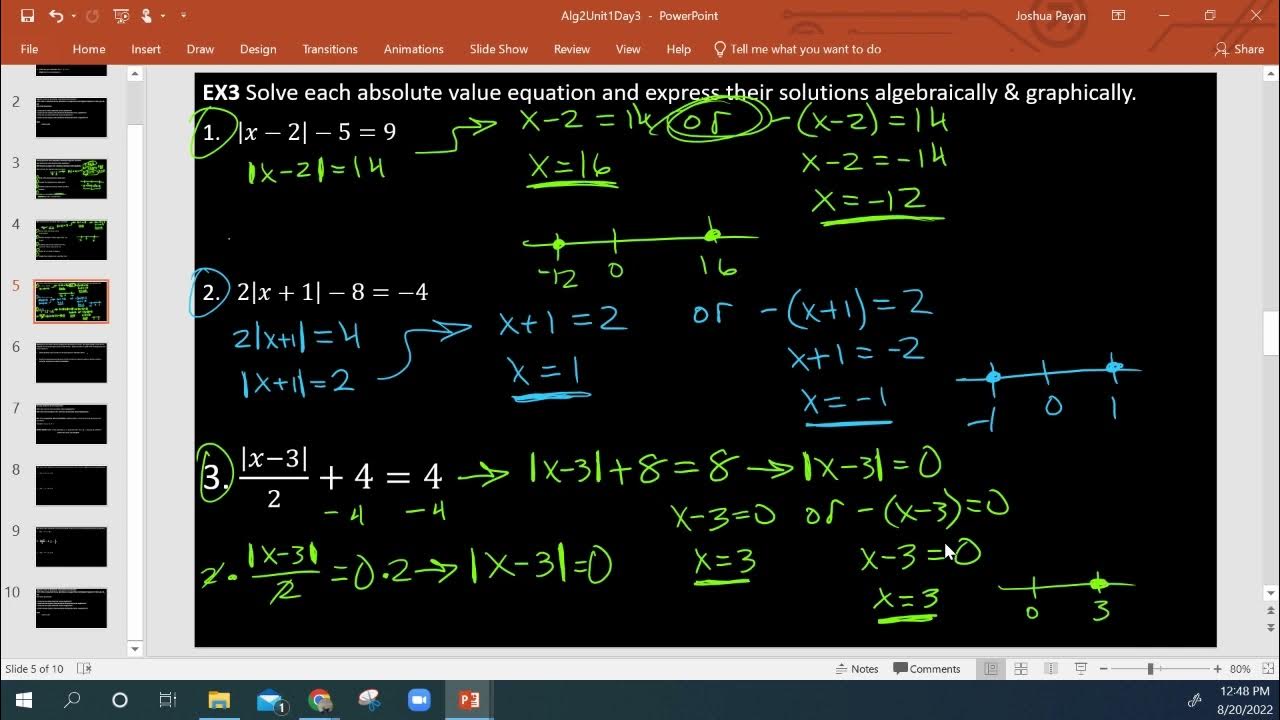 Alg2Unit1Day3 - PowerPoint
Joshua Payan
File Home Insert Draw Design Transitions Animations Slide Show Review View Help Tell me what you want to do Share
2
3
4
5
6
7
8
9
10
EX3 Solve each absolute value equation and express their solutions algebraically & graphically.
1. |x − 2| − 5 = 9
|x-2|=14
x-2=14 or -(x-2)=14
x=16
x-2=-14
x=-12
-12 0 16
2. 2|x + 1| − 8 = −4
2|x+1|=4
|x+1|=2
x+1=2 or -(x+1)=2
x=1
x+1=-2
x=-1
-1 0 1
3. |x−3|/2 + 4 = 4 → |x-3|+8=8 → |x-3|=0
-4 -4
x-3=0 or -(x-3)=0
2·|x-3|/2=0·2 → |x-3|=0
x=3
x-3=0
x=
0 3
Slide 5 of 10
Notes Comments
80%
1
12:48 PM
8/20/2022